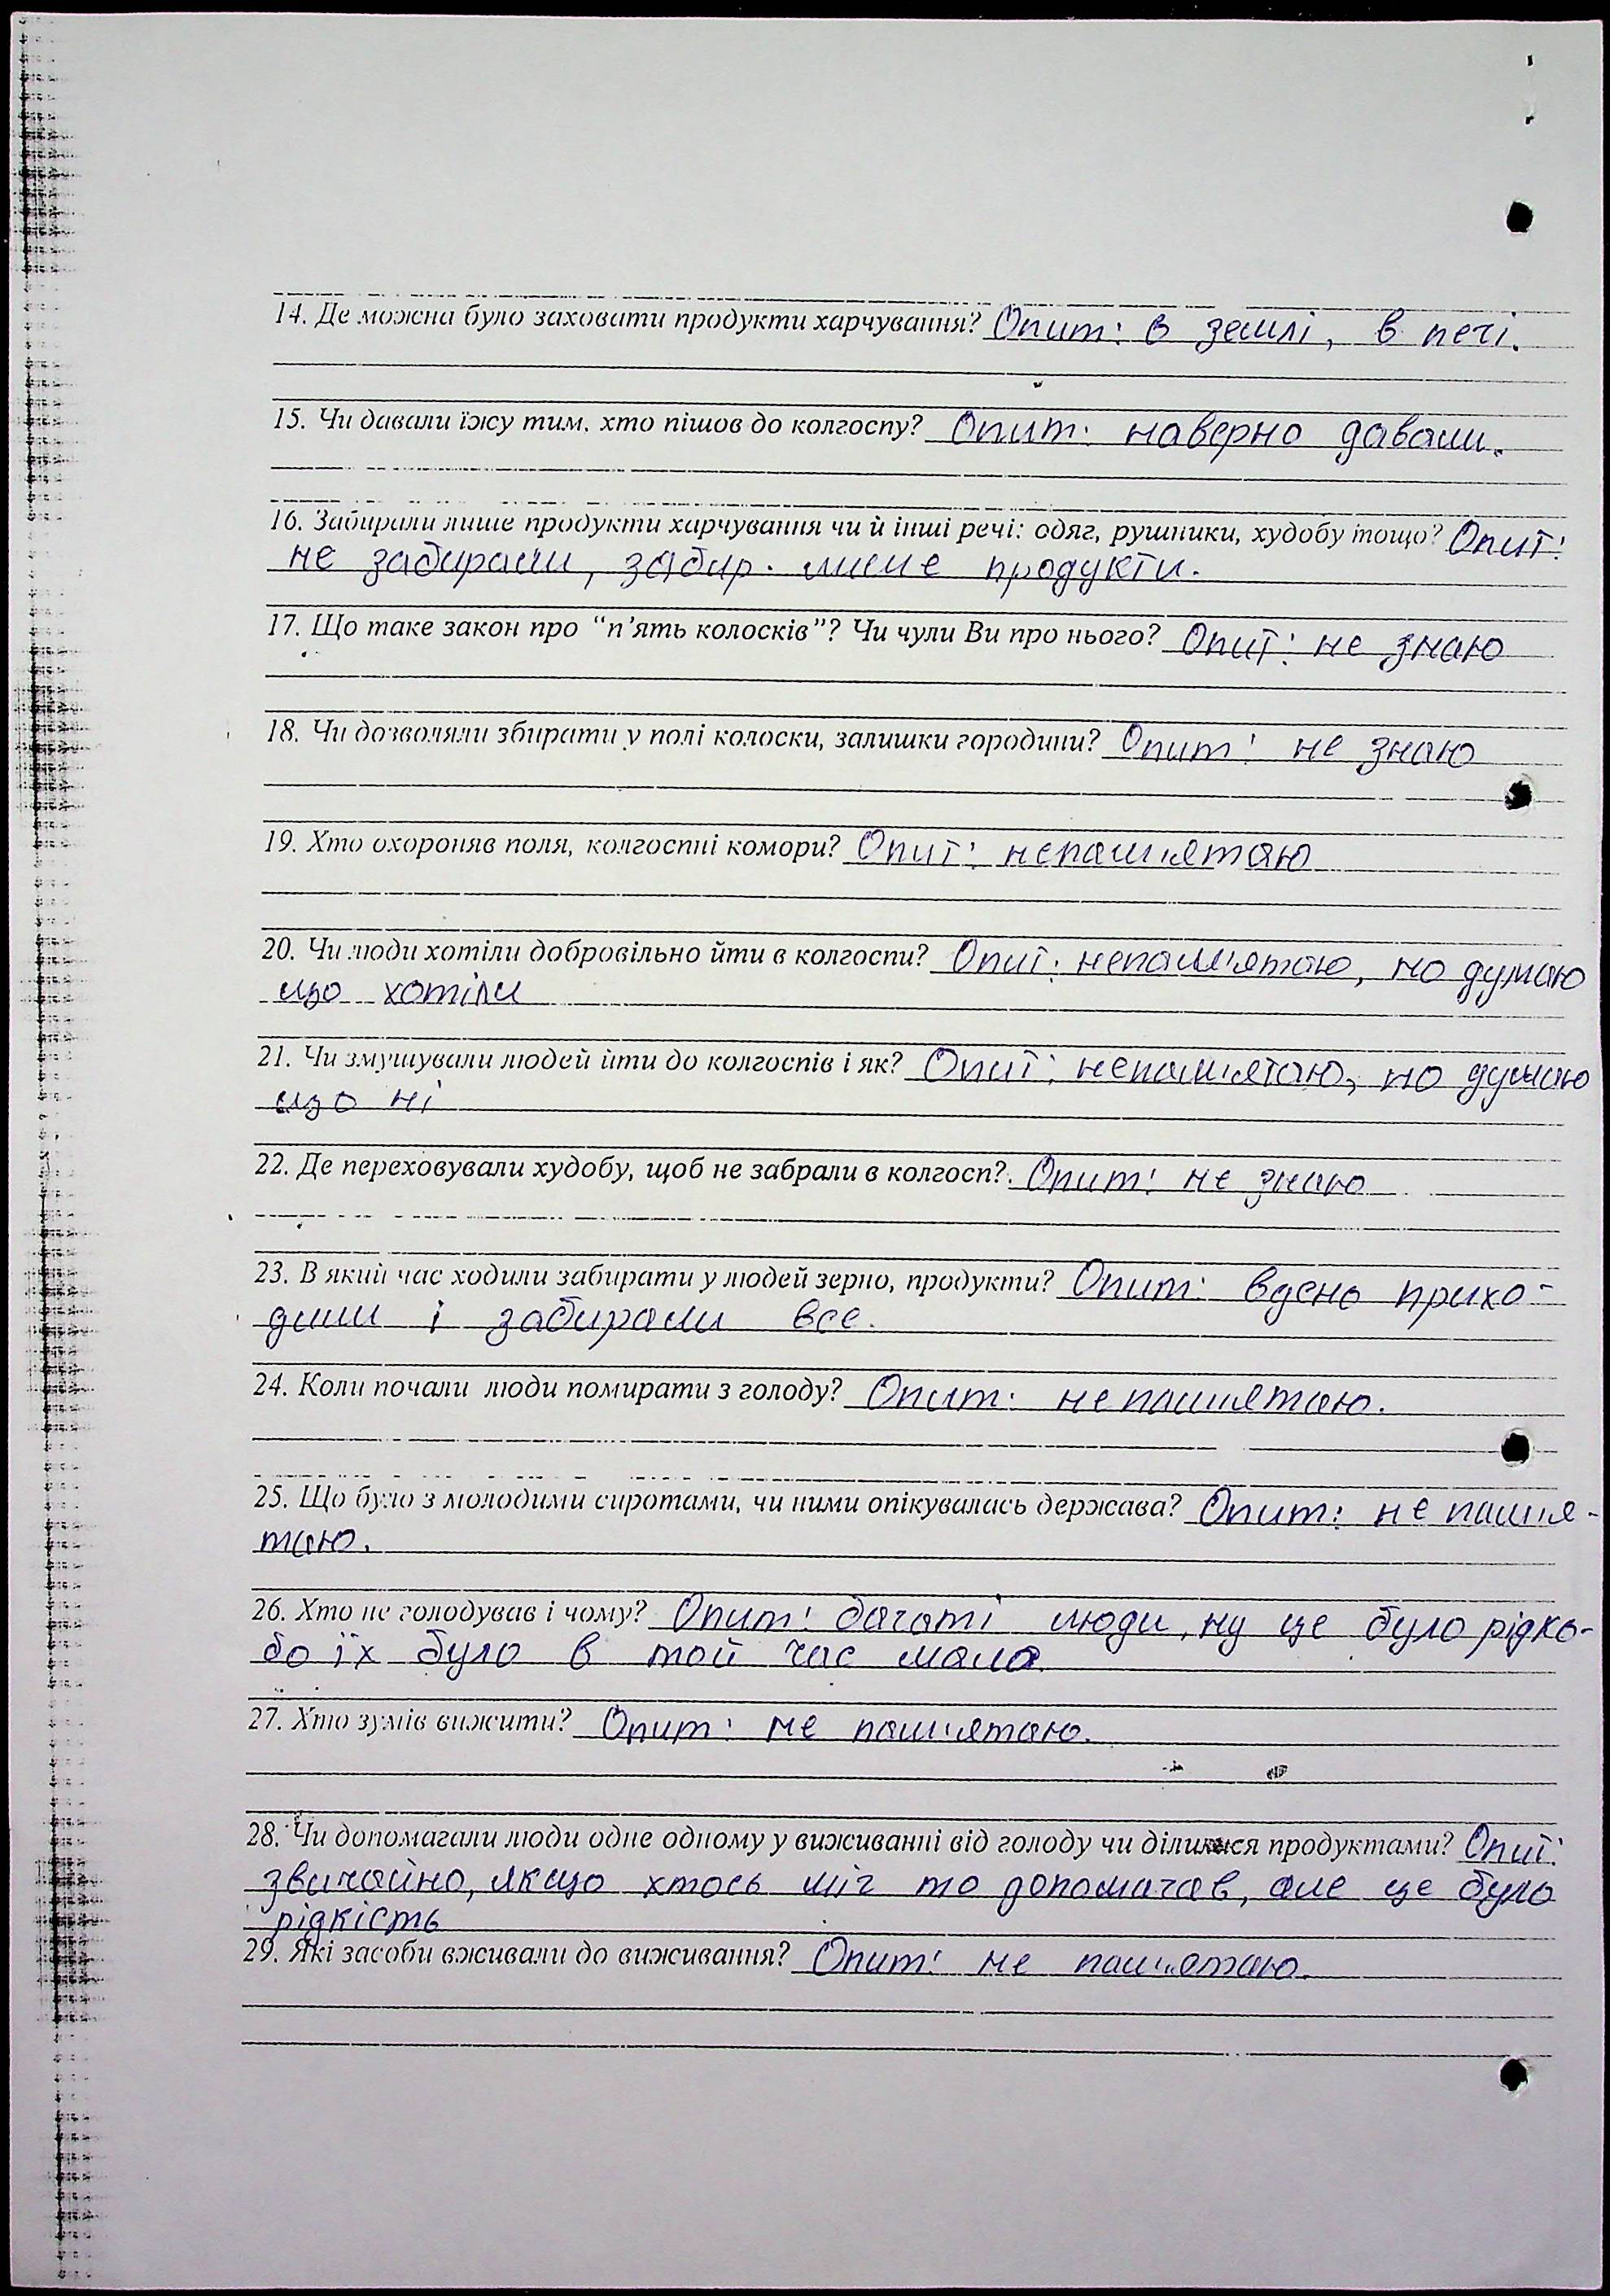 14. Де можна було заховати продукти харчування? Опит: в землі, в печі.
15. Чи давали їжу тим, хто пішов до колгоспу? Опит: наверно давали.
16. Забирали лише продукти харчування чи й інші речі: одяг, рушники, худобу тощо? Опит:
не забирали, забир. лише продукти.
17. Що таке закон про “п’ять колосків”? Чи чули Ви про нього? Опит: не знаю
18. Чи дозволяли збирати у полі колоски, залишки городини? Опит: не знаю
19. Хто охороняв поля, колгоспні комори? Опит: непам'ятаю
20. Чи люди хотіли добровільно йти в колгоспи? Опит: непам'ятаю, но думаю
що хотіли
21. Чи змушували людей йти до колгоспів і як? Опит: непам'ятаю, но думаю
що ні
22. Де переховували худобу, щоб не забрали в колгосп? Опит: не знаю
23. В який час ходили забирати у людей зерно, продукти? Опит: вдено прихо-
дили і забирали все.
24. Коли почали люди помирати з голоду? Опит: непам'ятаю.
25. Що було з молодими сиротами, чи ними опікувалась держава? Опит: не пам'я-
таю.
26. Хто не голодував і чому? Опит: багаті люди, ну це було рідко-
бо їх було в той час мало.
27. Хто зумів вижити? Опит: не пам'ятаю.
28. Чи допомагали люди одне одному у виживанні від голоду чи ділилися продуктами? Опит:
звичайно, якщо хтось міг то допомагав, але це було
рідкість
29. Які засоби вживали до виживання? Опит: не пам'ятаю.